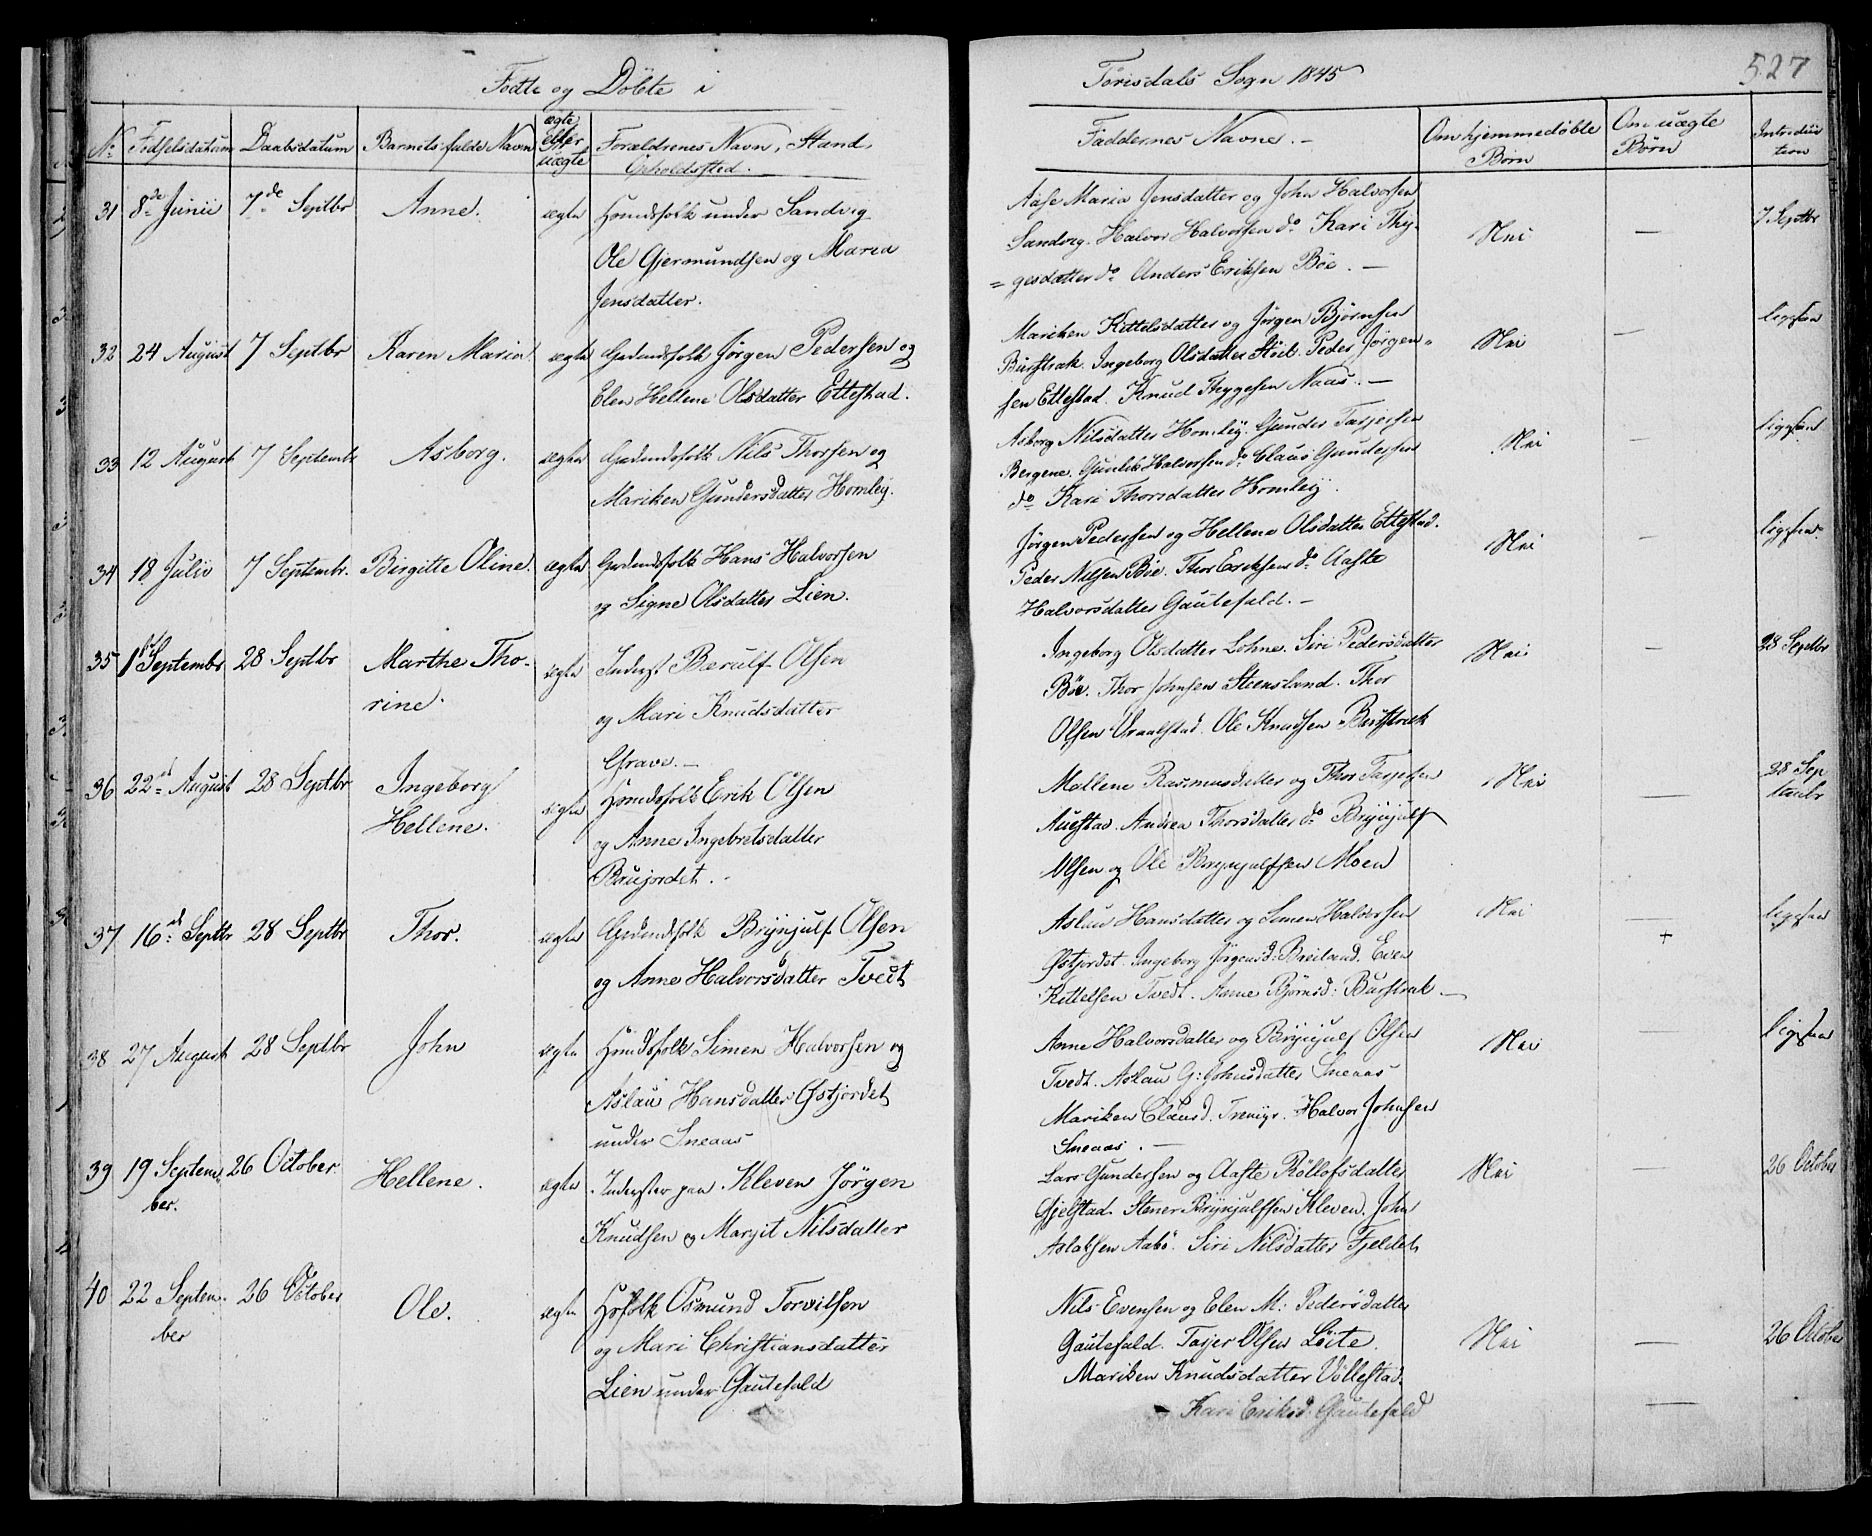 Fødte og Döbte i
Törisdals Sogn 1845
527
No Fødselsdatum Daabsdatum Barnets fulde Navn ægte eller uægte Forældrenes Navn, Stand, Opholdssted.
Faddernes Navne. - Om hjemmedøbte Børn Om uægte Børn Introduction
31 8de Junii 7de Septbr Anne. ægte Huusmdsfolk under Sandvig
Ole Gjermundsen og Maria
Jensdatter.
Aase Maria Jensdatter og John Halvorsen
Sandvig. Halvor Halvorsen do Kari Thy-
=gesdatter do Anders Eriksen Böe. —
Nei — 7 Septbr
32 24 August 7 Septbr Karen Maria ægte Gndsfolk Jørgen Pedersen og
Elen Hellene Olsdatter Ettestad.
Mariken Kittelsdatter og Jørgen Björnsen
Burstrak. Ingeborg Olsdatter Peder Jörgen=
sen Ettestad. Knud Thyggesen Naas. —
Nei — ligesaa
33 12 August 7 Septembr Asborg. ægte Nils Thorsen og
Mariken Gundersdatter Homleij.
Asborg Nilsdatter Homleij. Gunder Tarjersen
Bergene. Gunlik Halvorsen do Claus Gundersen
do Kari Thorsdatter Homleij.
Nei — ligesaa
34 18 Julii 7 Septembr. Birgitte Oline. ægte Hans Halvorsen
og Signe Olsdatter Lien.
Jörgen Pedersen og Hellene Olsdatter Ettestad.
Peder Nilsen Böe. Thor Eriksen do Aaste
Halvorsdatter Gautefald. —
Nei — ligesaa
35 1st Septembr 28 Septbr Marthe Tho-
rine. ægte Inderst Bærulf Olsen
og Mari Knudsdatter
Grave. —
Ingeborg Olsdatter Lohne. Siri Pedersdatter
Böe. Thor Johnsen Steensland. Thor
Olsen Vraalstad. Ole Knudsen Burstrak
Nei — 28 Septbr
36 22d August 28 Septbr Ingeborg
Hellene. ægte Erik Olsen
og Anne Ingebretsdatter
Brujordet. -
Mallene Rasmusdatter og Thor Tarjesen
Austad. Andrea Thorsdatter do Brynjulf
Olsen og Ole Brynjulfsen Moen
Nei — 28 Sep
tembr
37 16d Septbr 28 Septbr Thor. ægte Brynjulf Olsen
og Anne Halvorsdatter Tvedt
Aslau Hansdatter og Simen Halvorsen
Østjordet. Ingeborg Jørgensd: Breiland. Even
Kittelsen Tvedt. Anne Björnsd: Burstrak —
Nei — + ligesaa
38 27 August 28 Septbr John ægte Simen Halvorsen og
Aslau Hansdatter Østjordet
under Sneaas
Anne Halvorsdatter og Brynjulf Olsen
Tvedt. Aslau G: Johnsdatter Sneaas
Mariken Clausd. Halvor Johnsen
Sneaas. —
Nei — ligesaa
39 19 Septem-
ber. 26 October. Hellene. ægte Inderster paa Kleven Jörgen
Knudsen og Margit Nilsdatter
Lars Gundersen og Aaste Röllofsdatter
Gjelstad. Stener Brynjulfsen Kleven. John
Aslaksen Aabö. Siri Nilsdatter Fjeldet
Nei — 26 October
40 22 Septem-
ber 26 October Ole. ægte Osmund Torvilsen
og Mari Christiansdatter
Lien under Gautefald
Nils Evensen og Elen M: Pedersdatter
Gautefald. Tarjer Olsen Löite.
Mariken Knudsdatter Völlestad.
Kari Eriksd. Gautefald
Nei — 26 October